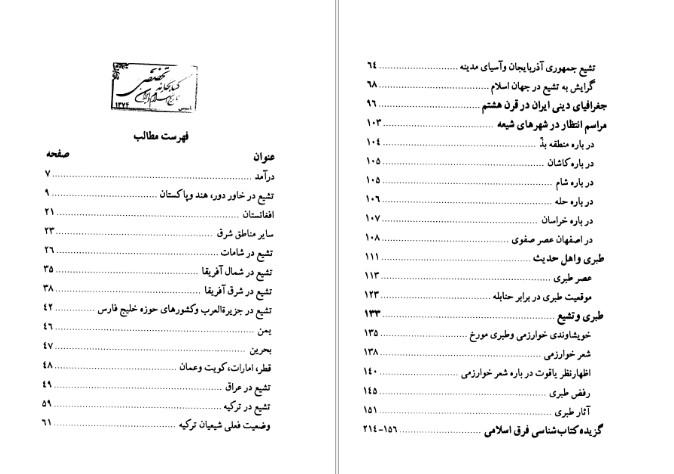 کتابخانه تخصصی
تاریخ اسلام و ایران
۱۳۷۴
فهرست مطالب
عنوان صفحه
درآمد ۷
تشیع در خاور دور، هند و پاکستان ۹
افغانستان ۲۱
سایر مناطق شرق ۲۳
تشیع در شامات ۲۶
تشیع در شمال آفریقا ۳۵
تشیع در شرق آفریقا ۳۸
تشیع در جزیرةالعرب وکشورهای حوزه خلیج فارس ۴۲
یمن ۴۶
بحرین ۴۷
قطر، امارات، کویت وعمان ۴۸
تشیع در عراق ۴۹
تشیع در ترکیه ۵۹
وضعیت فعلی شیعیان ترکیه ۶۱
تشیع جمهوری آذربایجان وآسیای مدینه ۶۴
گرایش به تشیع در جهان اسلام ۶۸
جغرافیای دینی ایران در قرن هشتم ۹۶
مراسم انتظار در شهرهای شیعه ۱۰۳
در باره منطقه بذّ ۱۰۴
در باره کاشان ۱۰۵
در باره شام ۱۰۵
در باره حله ۱۰۶
در باره خراسان ۱۰۷
در اصفهان عصر صفوی ۱۰۸
طبری واهل حدیث ۱۱۱
عصر طبری ۱۱۳
موقعیت طبری در برابر حنابله ۱۲۳
طبری وتشیع ۱۳۳
خویشاوندی خوارزمی وطبری مورخ ۱۳۵
شعر خوارزمی ۱۳۸
اظهارنظر یاقوت در باره شعر خوارزمی ۱۴۰
رفض طبری ۱۴۵
آثار طبری ۱۵۱
گزیده کتاب‌شناسی فرق اسلامی ۱۵۶-۲۱۴